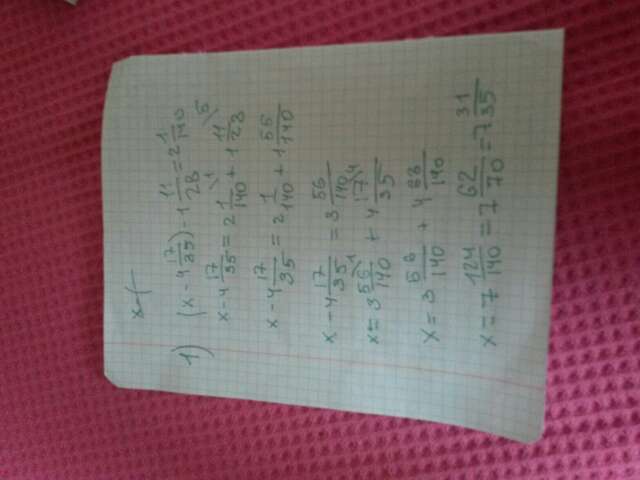 x-(
1) (x - 4 17/35) - 1 11/28 = 2 1/140
x - 4 17/35 = 2 1/140 + 1 11/28
x - 4 17/35 = 2 1/140 + 1 55/140
x - 4 17/35 = 3 56/140
x = 3 56/140 + 4 17/35
x = 3 56/140 + 4 68/140
x = 7 124/140 = 7 62/70 = 7 31/35